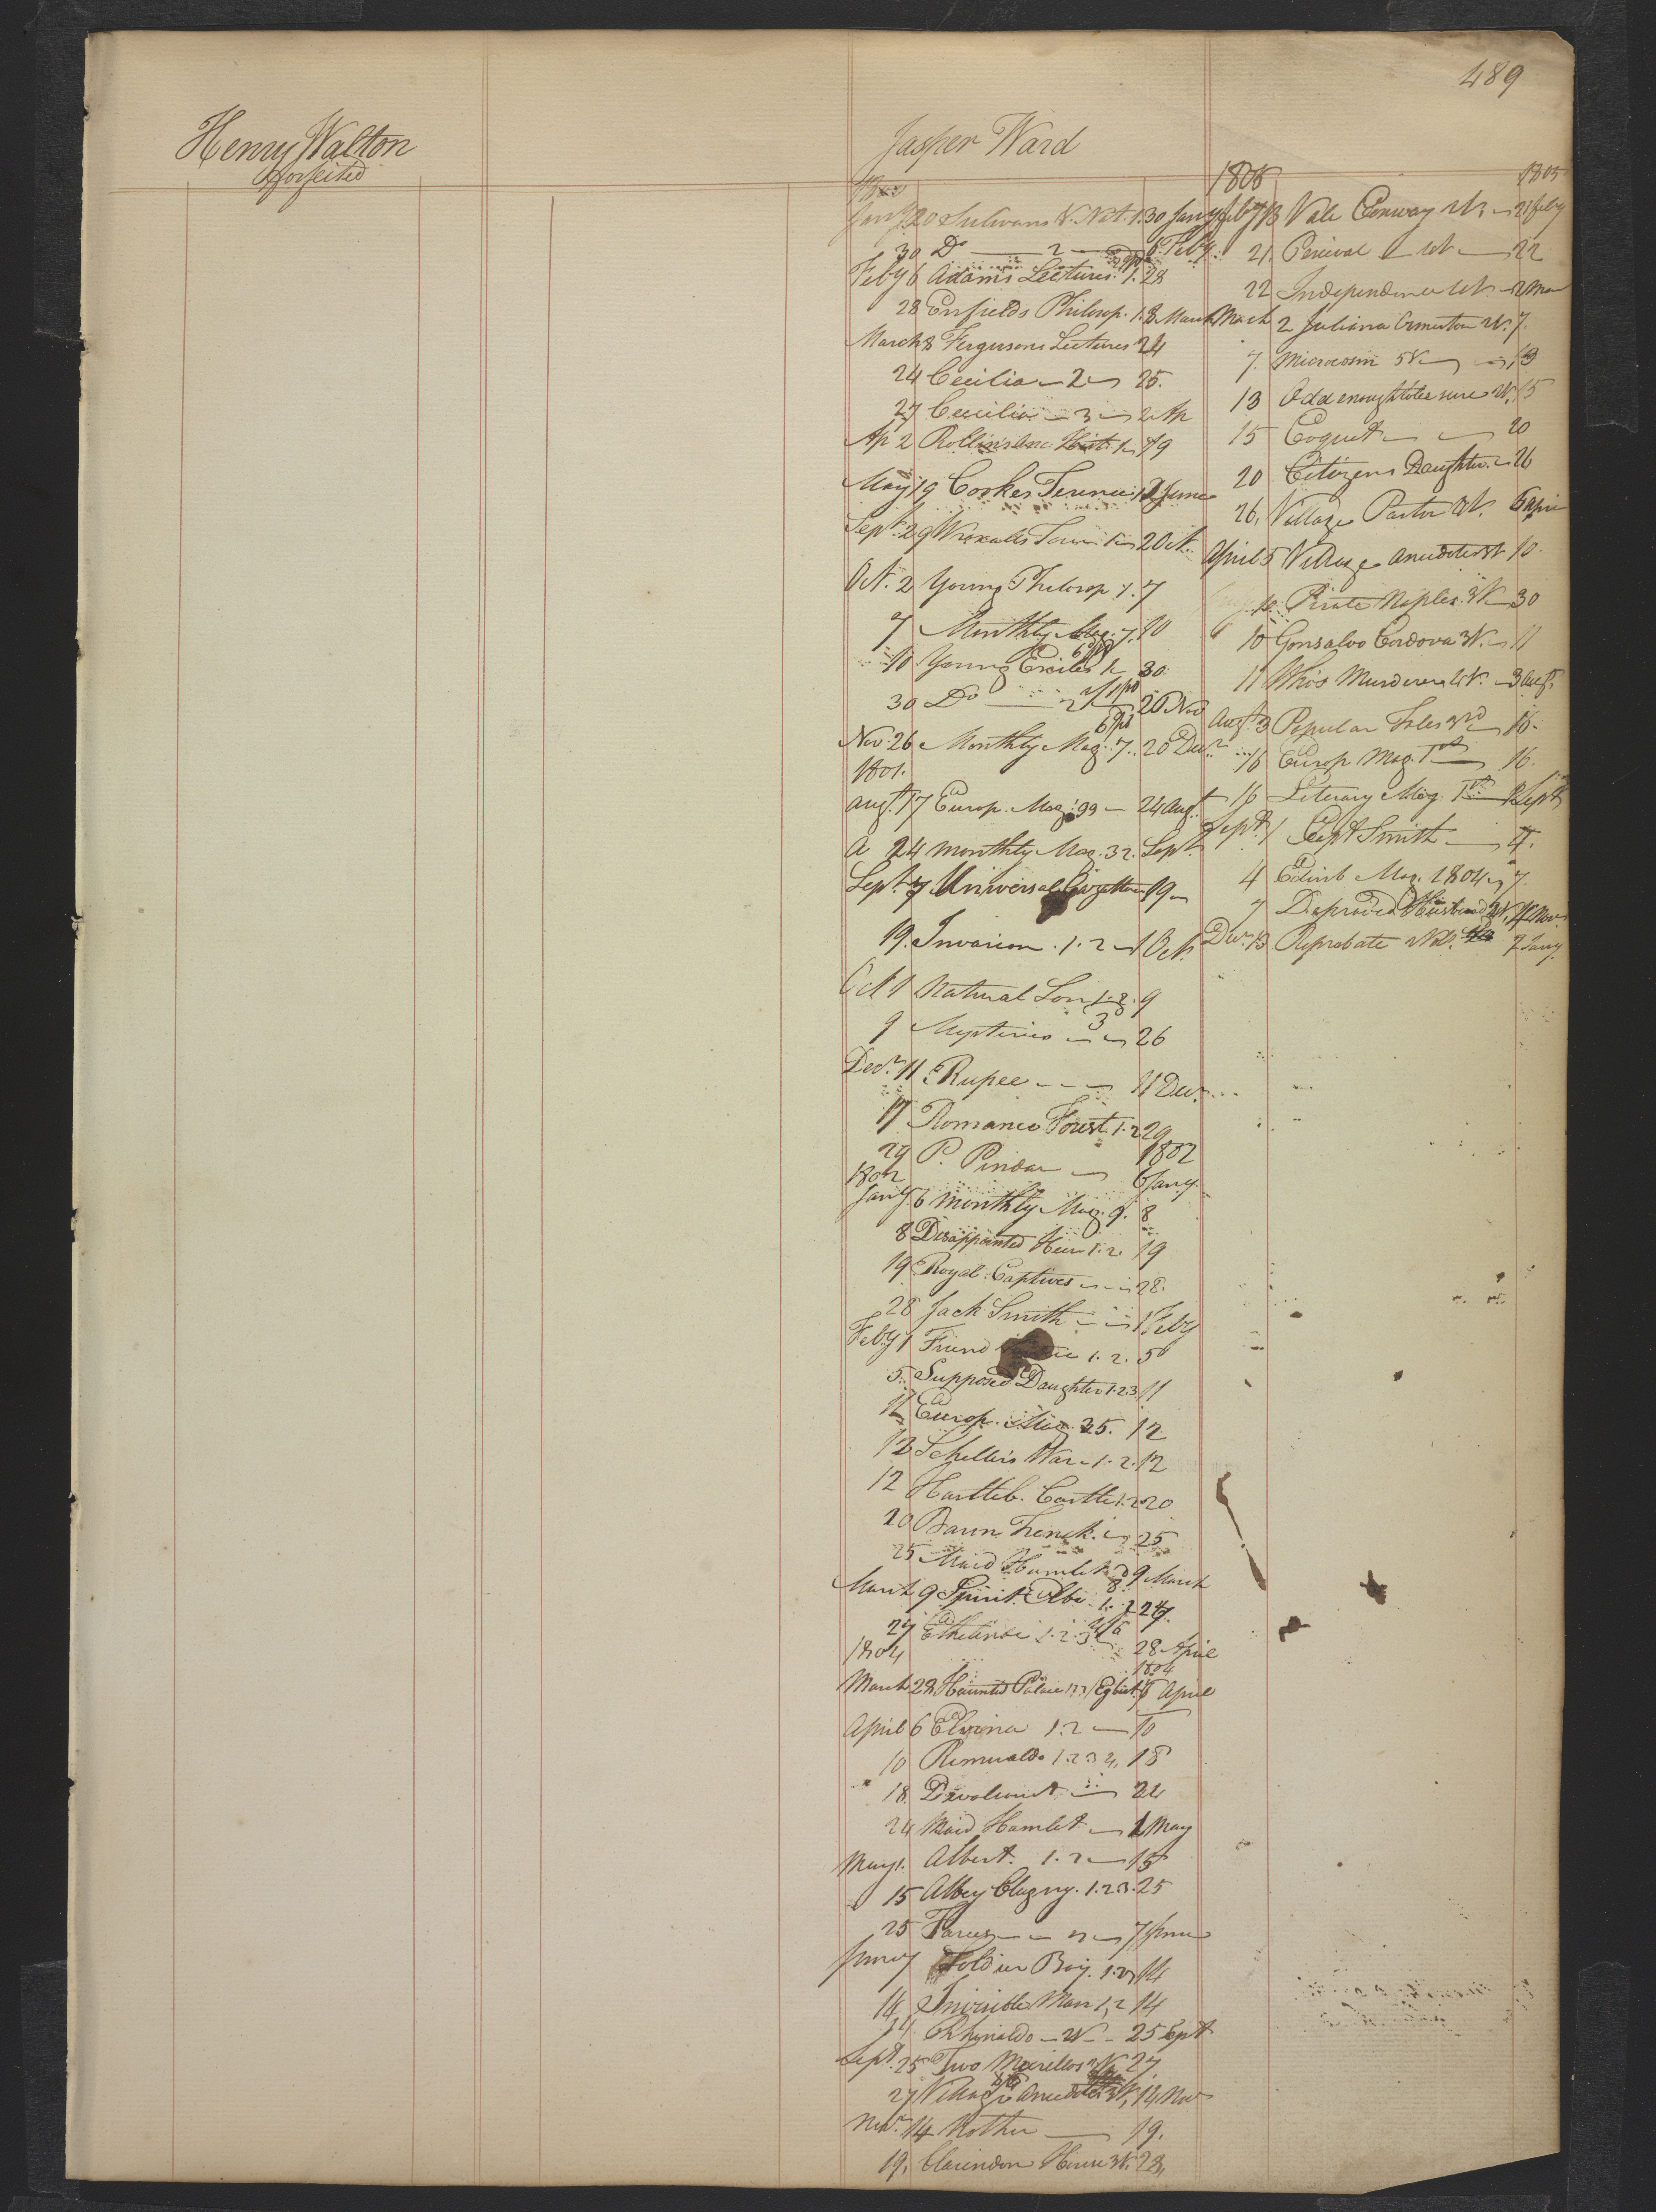 489
Henry Walton
forfeited
Jasper Ward
Jany 20 Sulivans V. Nat. 1. 30 Jany
30 Do 2 6 Feby
Feby 6 Adams Lectures 1. 28
28 Enfields Philosop. 1. 8 March
March 8 Fergusons Lectures 24
24 Cecilia 2 25.
27 Cecilia 3 2 Ap
Ap 2 Rollins Anc. Hist. 1 19
May 19 Cookes Terence 1 June
Sept. 29 Wraxalls Tour 1 2 Oct.
Oct. 2 Young Philosop 1. 7
7 Monthly Mag. 7. 10
10 Young Exiles 1 30
30 Do 2 20 Nov
Nov. 26 Monthly Mag. 7. 20 Decr
1801.
Augt. 17 Europ. Mag. 39 24 Augt
A 24 Monthly Mag. 32. Sept.
Sept. 7 Universal Gazetteer 19
19. Invasion. 1. 2 1 Oct.
Oct 1 Natural Son 1. 2. 9
9 Mysteries 3 26
Decr. 11 Rupee 11 Decr.
17 Romance Forest. 1. 2 29
29 P. Pindar 1802 6 Jany.
1802
Jany. 6 Monthly Mag. 9. 8
8 Disappointed Heir 1. 2 19
19 Royal Captives 28.
28 Jack Smith 1 Feby
Feby 1 Friend 1. 2. 5
5. Supposed Daughter 1.2.3 11
11 Europ. Mag. 35. 12
12 Schellers War. 1. 2. 12
12 Hartleb. Castle 1. 2 20
20 Baron Trenck. 25
25 Maid Hamlet 9 March
March 9 Spirit Elbe. 1. 2 27.
27 Ethelinde 1. 2. 3 28 April
1804 1804
March 28 Haunted Palace 1 2 3 / Egbert 6 April
April 6 Elvina 1. 2 10
10 Romualdo 1. 2 3 4. 18
18. Devolient 24
24 Maid Hamlet 1 May
May 1. Albert. 1. 2 15
15 Abbey Clugny. 1. 2 3. 25
25 Farces 7 June
June 7 Soldier Boy. 1. 2 14
14 Invisible Man 1, 2 14
14 Rhinaldo 2V 25 Sept
Sept. 25 Two Marillos 2V. 27
27 Village Anecdotes 3V. 14 Nov
Novr. 14 Mother 19.
19. Clarendon House 3V. 28.
1805 1805
Feby 13 Vale Conway 2V. 21 Feby
21 Percival 22
22 Independence 2 Mar
March 2 Juliana Ormeston 2V. 7.
7. Microcosm 5V 13
13 Odd enough to be sure 2V. 15
15 Coquet 20
20 Citizens Daughter. 26
26. Village Pastor 2V. 5 Apri
April 5 Village Anecdotes 3V 10.
10. Pirate Naples 3V 30
10 Gonsalvo Cordova 3V. 11
11 Who's Murderer 4V. 3 Augt.
Augt. 3 Popular Tales 3rd 16.
16 Europ Mag. 1st 16.
16 Literary Mag. 1st 1 Sept
Sept. 1 Capt Smith 4.
4 Edinb Mag. 1804 7.
7 Depraved Husband 2V. 4 Nov
Decr. 13 Reprobate 2 Vol. 7 Jany.